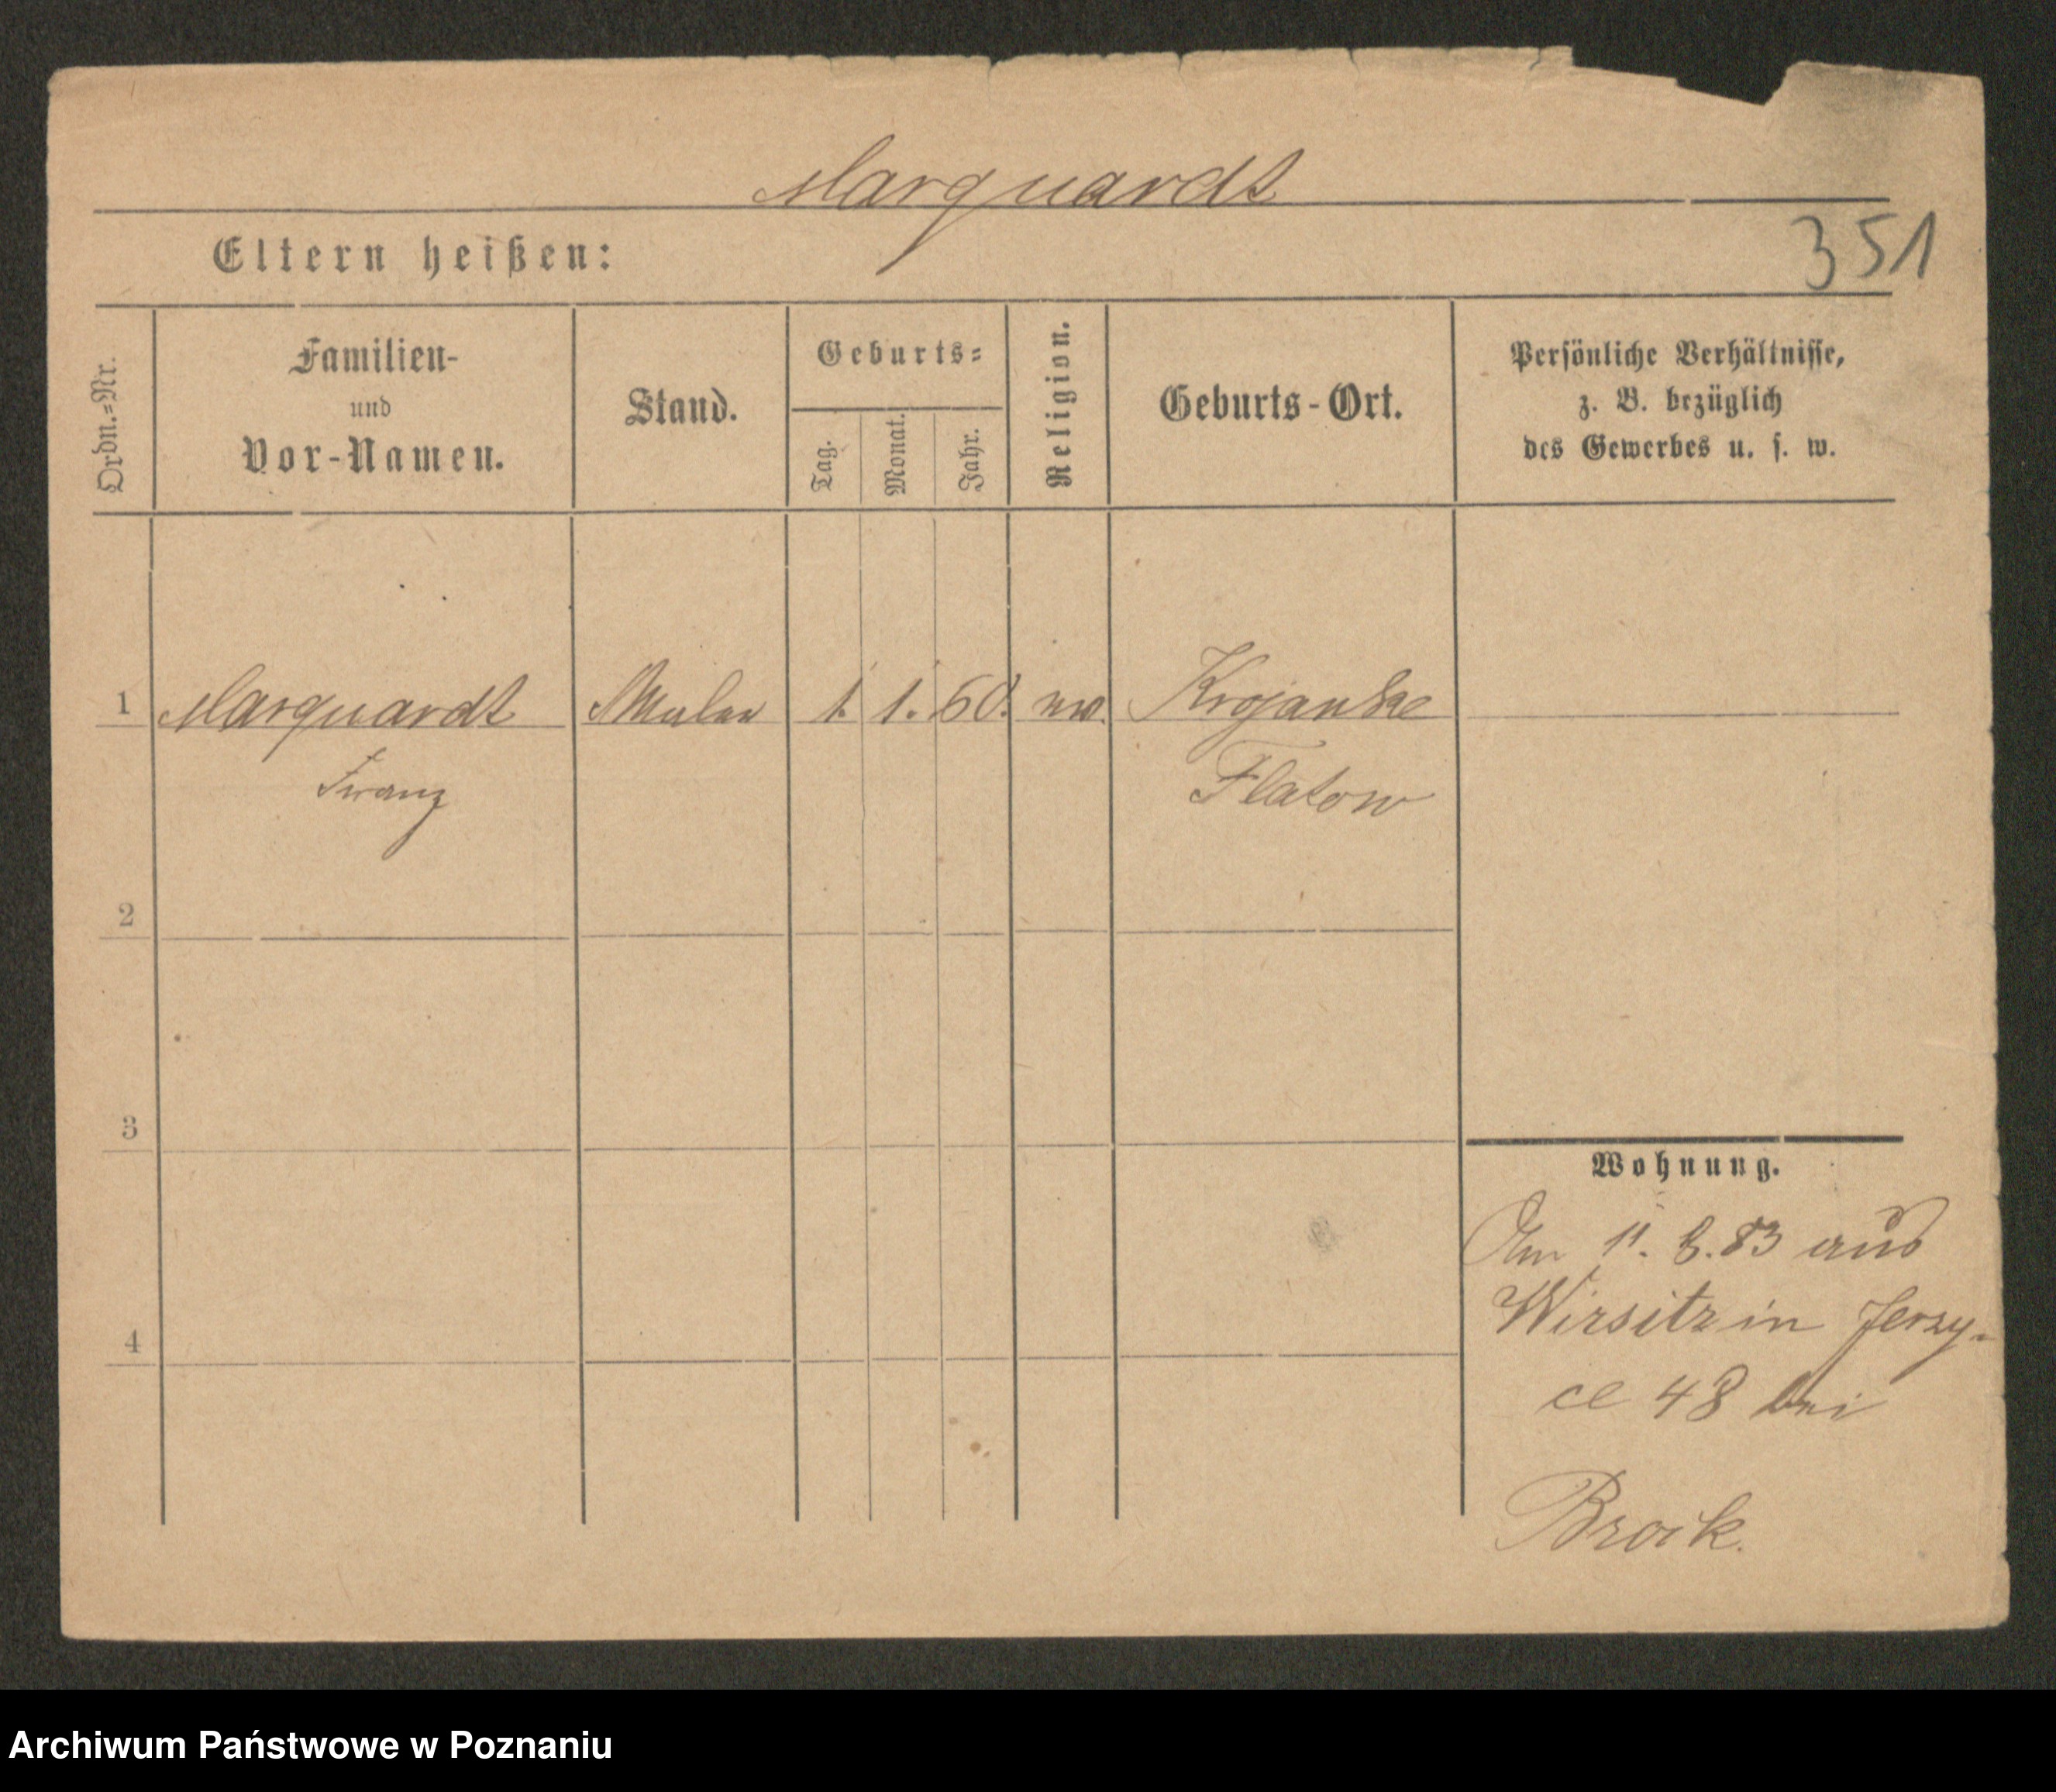 Marquardt
351
Eltern heißen:
Ordn.=Nr.
Familien-
und
Vor-Namen.
Stand.
Geburts=
Tag.
Monat.
Jahr.
Religion.
Geburts-Ort.
Persönliche Verhältnisse,
z. B. bezüglich
des Gewerbes u. s. w.
1 Marquardt Maler 1. 1. 60. Krojanke
Franz Flatow
2
3
4
Wohnung.
Am 11. 6. 83 aus
Wirsitz in Jerzy-
ce 48 bei
Brock.
Archiwum Państwowe w Poznaniu